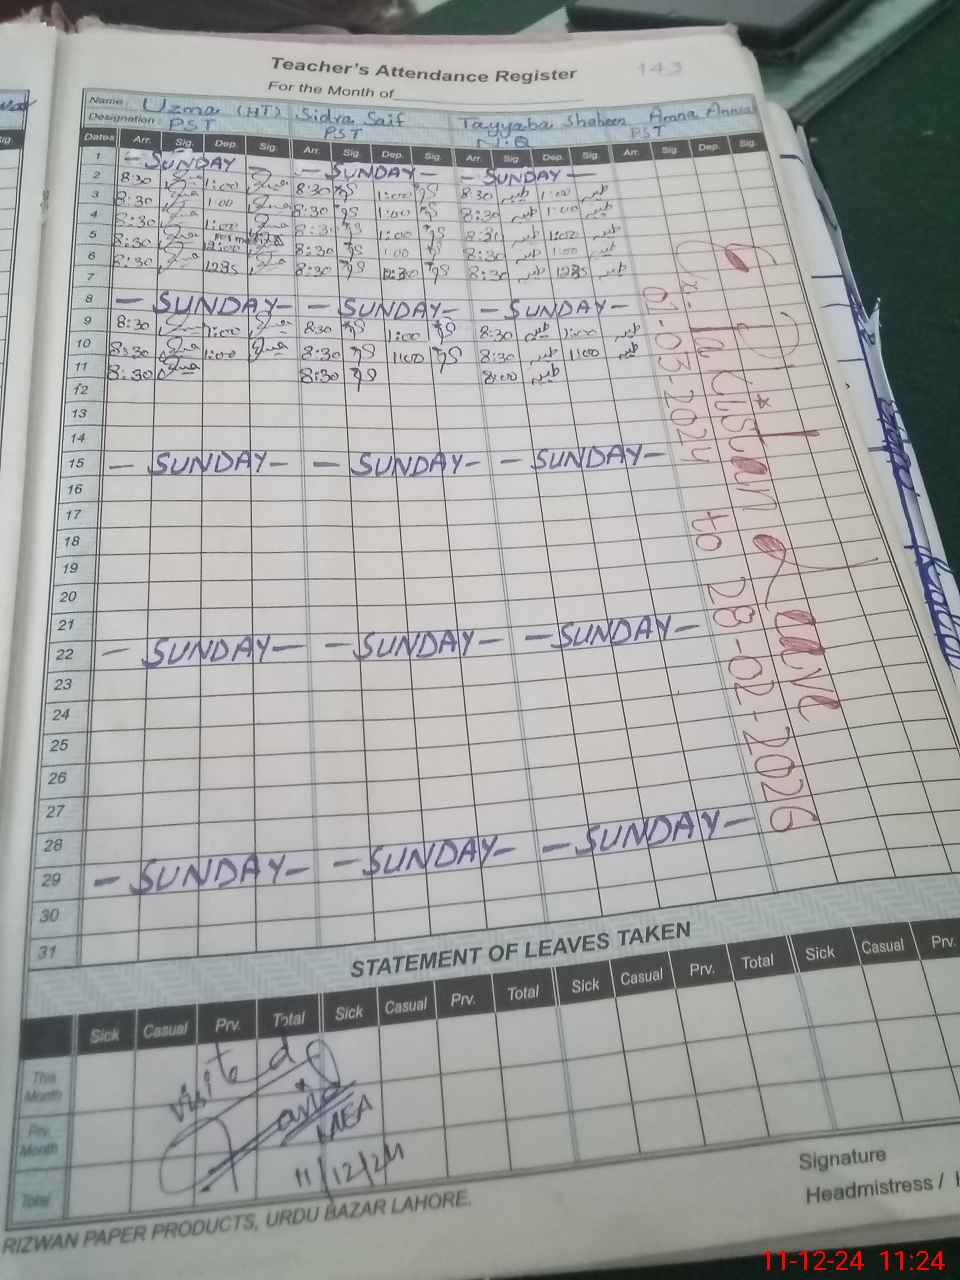 Teacher's Attendance Register
143
For the Month of
Name: Uzma (HT) Sidra Saif Tayyaba Shaheen Amna Annia
Designation: PST PST N.Q PST
Dates Arr. Sig. Dep. Sig. Arr. Sig. Dep. Sig. Arr. Sig. Dep. Sig. Arr. Sig. Dep. Sig.
1 - SUNDAY - - SUNDAY - - SUNDAY -
2 8:30 1:00 8:30 1:00 8:30 1:00
3 8:30 1:00 8:30 1:00 8:30 1:00
4 8:30 1:00 8:30 1:00 8:30 1:00
5 8:30 8:30 1:00 8:30 1:00
6 8:30 1235 8:30 12:30 8:30 1235
7
8 - SUNDAY - - SUNDAY - - SUNDAY -
9 8:30 1:00 8:30 1:00 8:30 1:00
10 8:30 1:00 8:30 1:00 8:30 1:00
11 8:30 8:30 8:00
12
13
14
15 - SUNDAY - - SUNDAY - - SUNDAY -
16
17
18
19
20
21
22 - SUNDAY - - SUNDAY - - SUNDAY -
23
24
25
26
27
28
29 - SUNDAY - - SUNDAY - - SUNDAY -
30
31
Ex-Pakistan Leave
01-03-2024 to 28-02-2026
STATEMENT OF LEAVES TAKEN
Sick Casual Prv. Total Sick Casual Prv. Total Sick Casual Prv. Total Sick Casual Prv.
This Month
Prv. Month
Total
visited
MEA
11/12/24
Signature
Headmistress /
RIZWAN PAPER PRODUCTS, URDU BAZAR LAHORE.
11-12-24 11:24